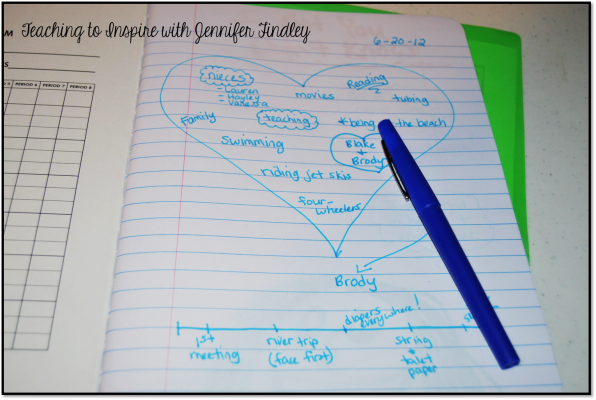 Teaching to Inspire with Jennifer Findley
6-20-12
PERIOD 6 PERIOD 7 PERIOD 8
nieces
- Lauren
- Hayley
- Vanessa
movies
Reading
tubing
Family
teaching
*being
the beach
Swimming
Blake
+
Brody
riding jet skis
four-
wheelers
Brody
diapers
everywhere!
1st
meeting
river trip
(face first)
string
+
toilet
paper